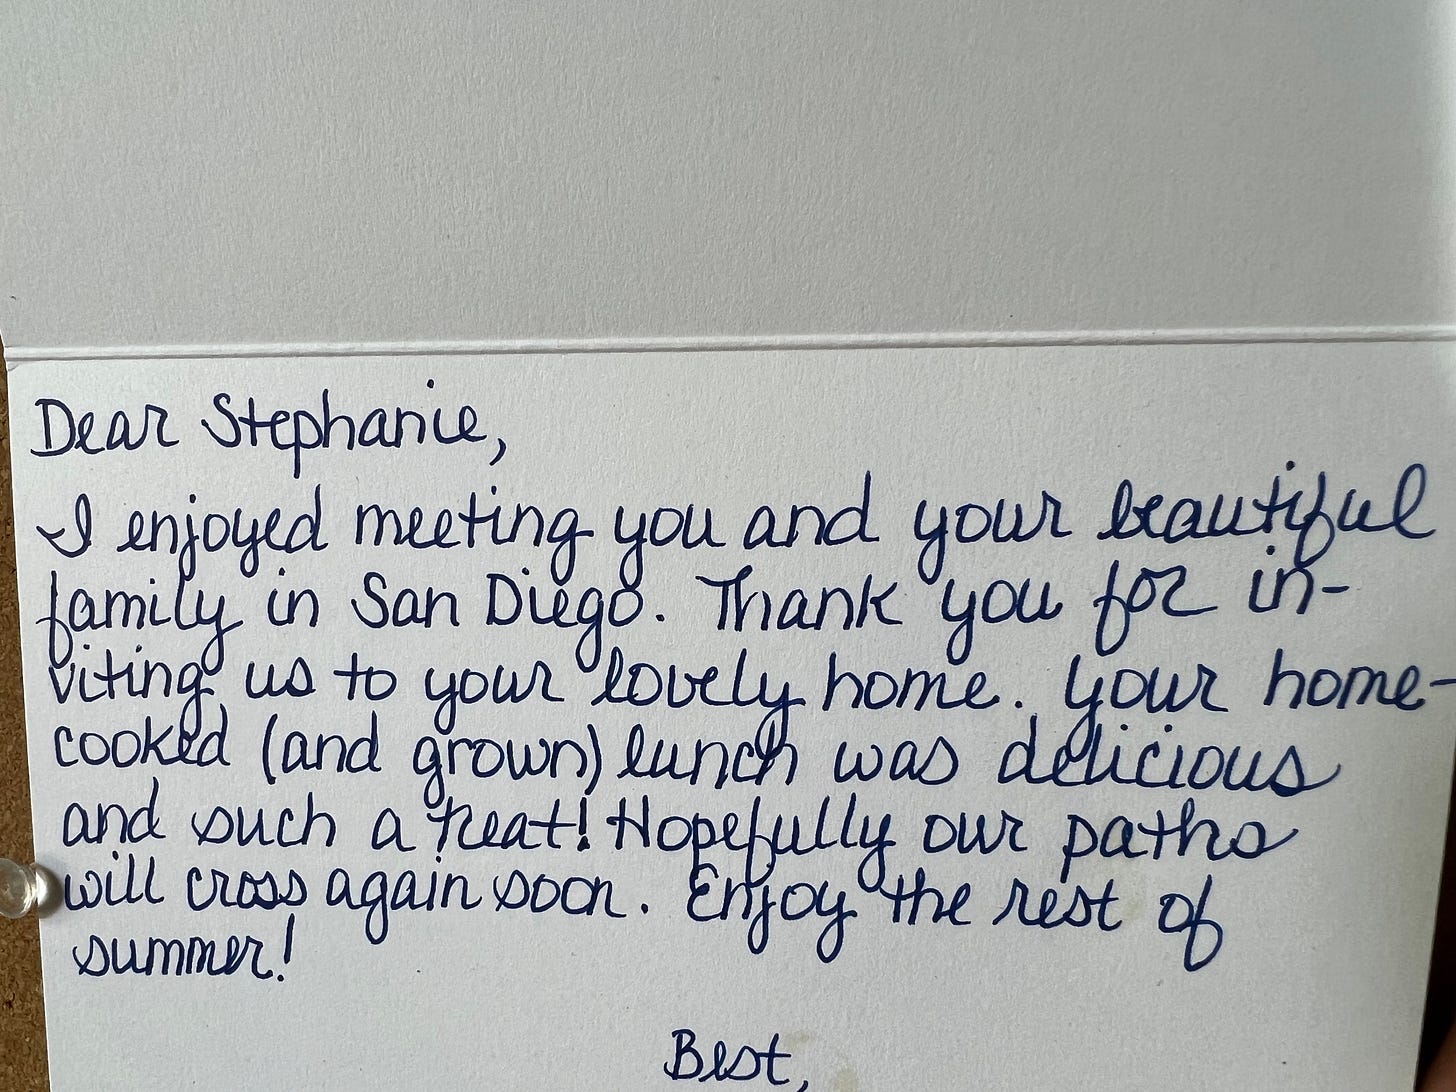 Dear Stephanie,
I enjoyed meeting you and your beautiful
family in San Diego. Thank you for in-
viting us to your lovely home. Your home-
cooked (and grown) lunch was delicious
and such a treat! Hopefully our paths
will cross again soon. Enjoy the rest of
summer!
Best,